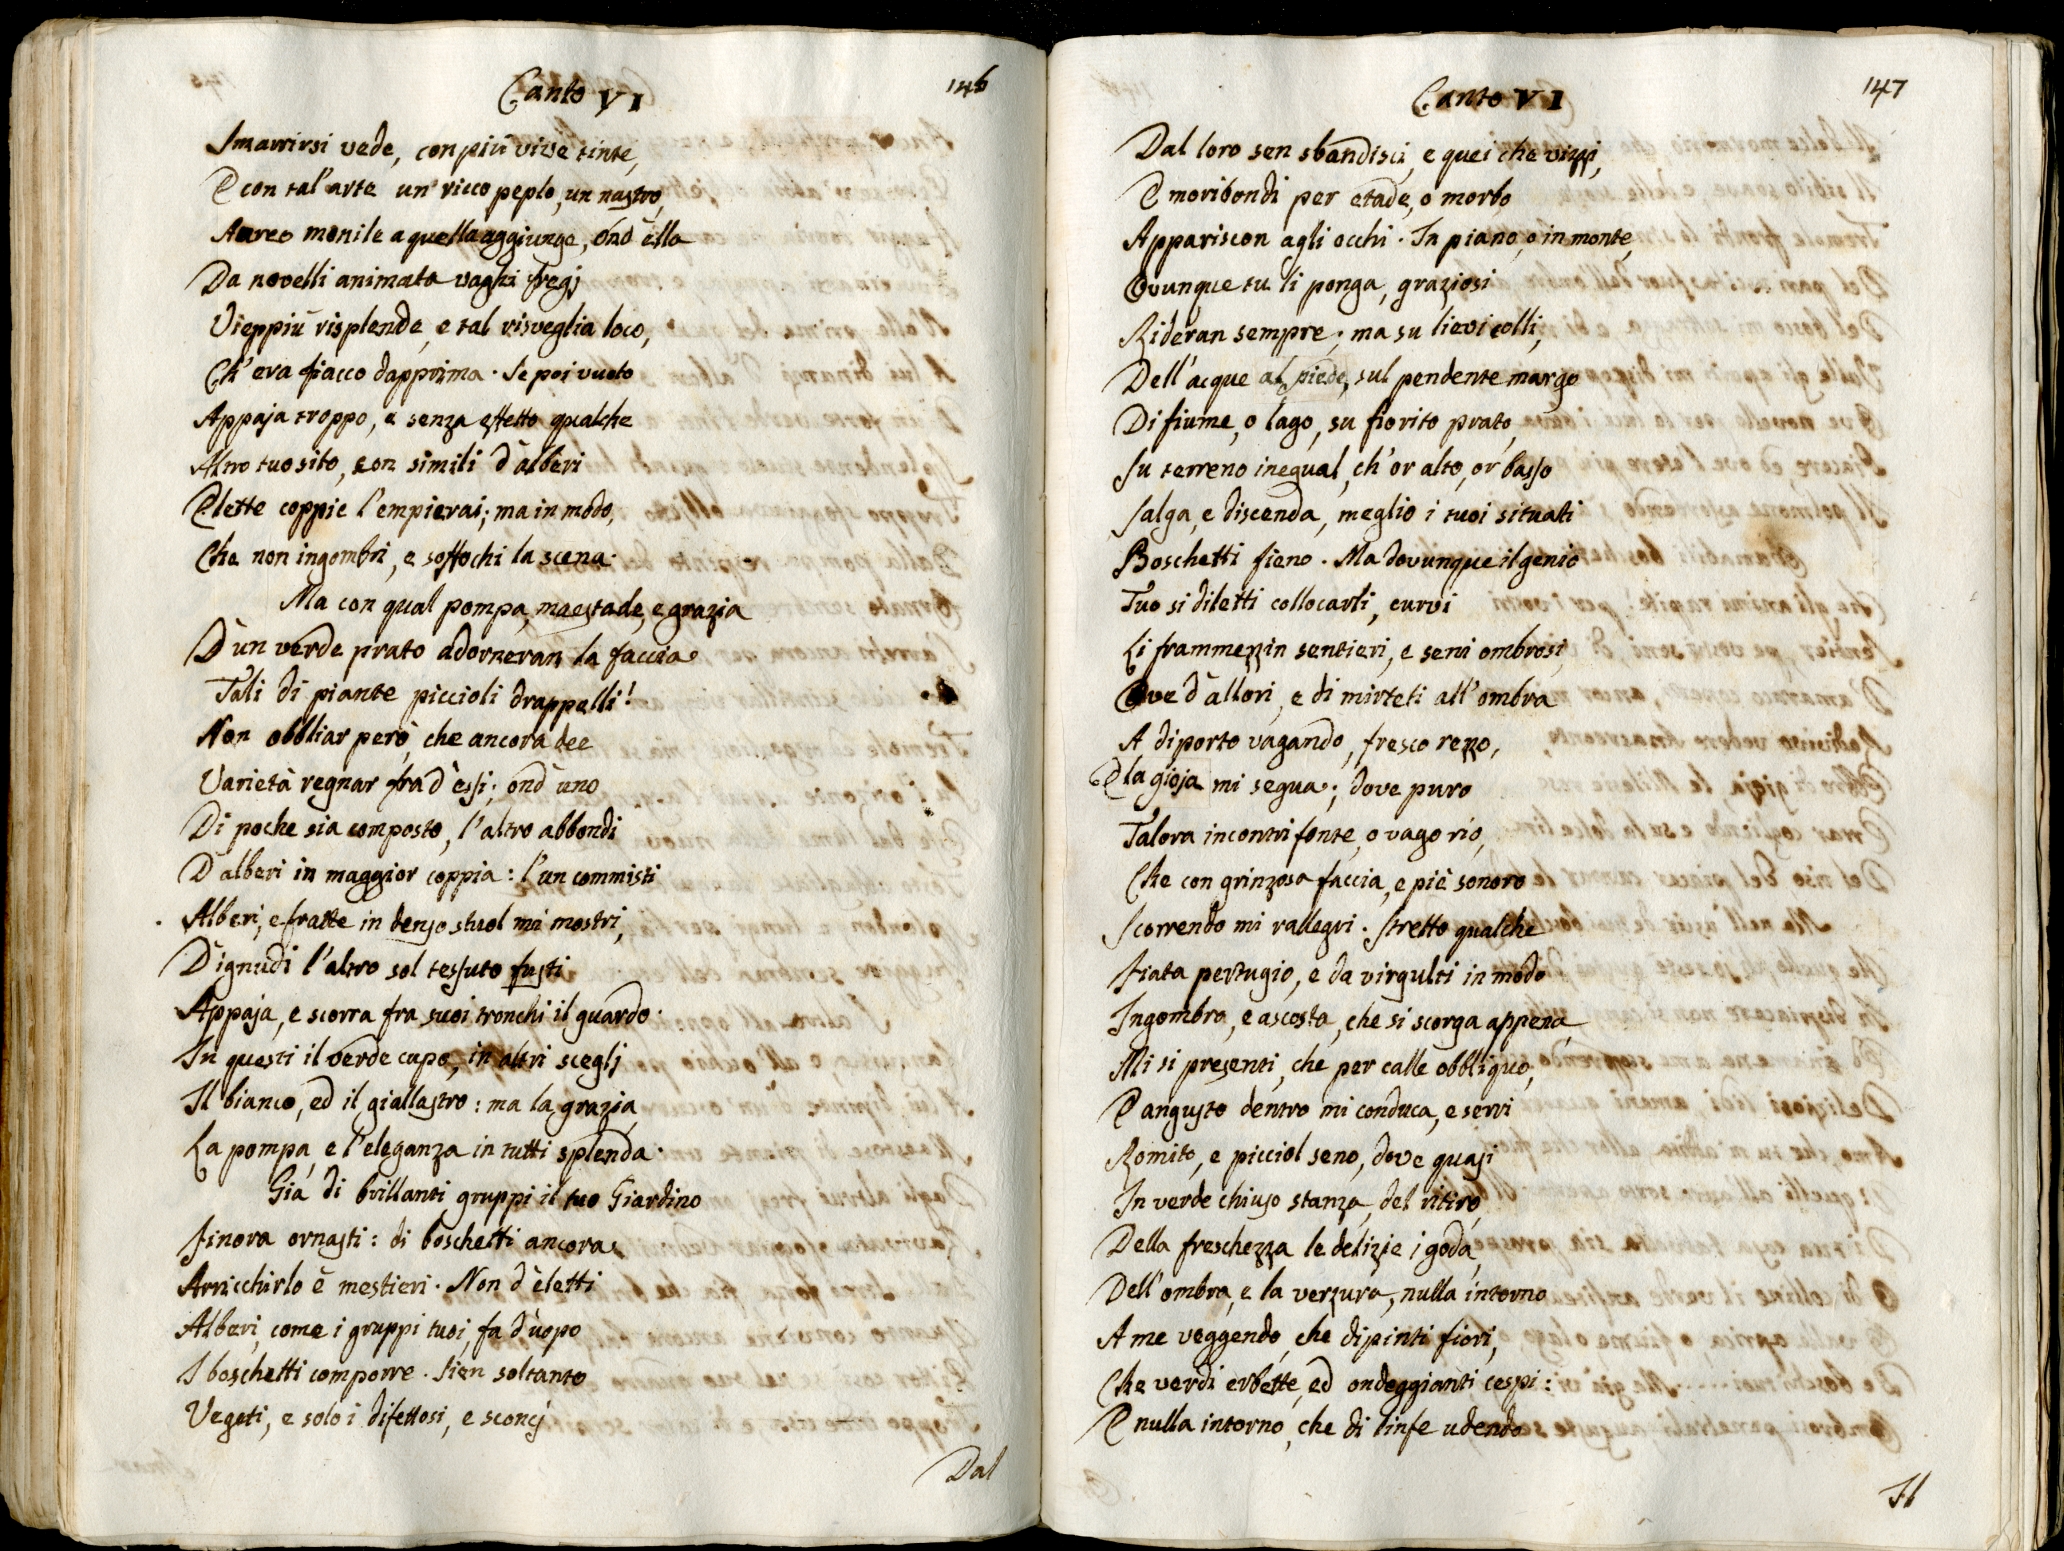 Canto VI
146
Smarrirsi vede, con più vive tinte,
E con tal' arte un' ricco peplo, un nastro,
Aureo monile a quella aggiunge, ond' ella
Da novelli animata vaghi fregj
Vieppiù risplende, e tal risveglia loco,
Ch' era fiacco dapprima. Se poi vuoto
Appaja troppo, e senza effetto qualche
Altro tuo sito, con simili d' alberi
Elette coppie l' empierai; ma in modo,
Che non ingombri, e soffochi la scena.
Ma con qual pompa, maestade, e grazia
D' un verde prato adorneran la faccia
Tali di piante piccioli drappelli!
Non obbliar però, che ancora dee
Varietà regnar fra d' essi; ond' uno
Di poche sia composto, l' altro abbondi
D' alberi in maggior coppia: l' un commisti
Alberi, e fratte in denso stuol mi mostri,
D' ignudi l' altro sol tessuto fusti
Appaja, e scorra fra suoi tronchi il guardo.
In questi il verde cupo, in altri sceglj
Il bianco, ed il giallastro: ma la grazia,
La pompa, e l' eleganza in tutti splenda.
Già di brillanti gruppi il tuo Giardino
Finora ornasti: di boschetti ancora
Arricchirlo è mestieri. Non d' eletti
Alberi, come i gruppi tuoi, fa d' uopo
I boschetti comporre. Sien soltanto
Vegeti, e solo i difettosi, e sconcj
Dal
Canto VI
147
Dal loro sen sbandisci, e quei che vizzi,
E moribondi per etade, o morbo
Appariscon agli occhi. In piano, o in monte,
Ovunque tu li ponga, graziosi
Rideran sempre; ma su lievi colli,
Dell' acque al piede, sul pendente margo
Di fiume, o lago, su fiorito prato,
Su terreno inegual, ch' or alto, or basso
Salga, e discenda, meglio i tuoi situati
Boschetti fieno. Ma dovunque il genio
Tuo si diletti collocarli, curvi
Li frammezzin sentieri, e seni ombrosi,
Ove d' allori, e di mirteti all' ombra
A diporto vagando, fresco rezzo,
E la gioja mi segua; dove puro
Talora incontri fonte, o vago rio,
Che con grinzosa faccia, e piè sonoro
Scorrendo mi rallegri. Stretto qualche
Fiata pertugio, e da virgulti in modo
Ingombro, e ascosto, che si scorga appena,
Mi si presenti, che per calle obbliquo,
E angusto dentro mi conduca, e servi
Romito, e picciol seno, dove quasi
In verde chiuso stanza, del ritiro,
Della freschezza le delizie i goda,
Dell' ombra, e la verzura, nulla intorno
A me veggendo, che dipinti fiori,
Che verdi erbette, ed ondeggianti cespi:
E nulla intorno, che di linfe udendo
Il